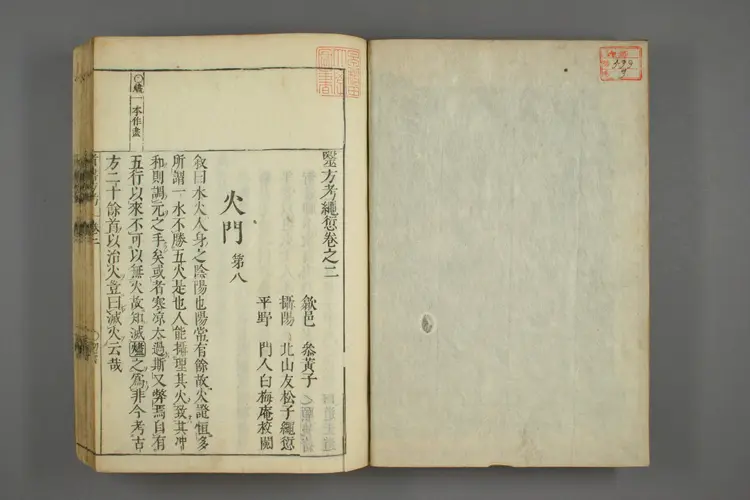 醫方考繩愆卷之二
歙邑　參黃子
攝陽　北山友松子繩愆
平野　門人白梅庵校閱
火門　第八
敘曰水火人身之陰陽也陽常有餘故火證恒多
所謂一水不勝五火是也人能攝理其火致其冲
和則調元之手矣或者寒凉太過斯又弊焉自有
五行以來不可以無火故知滅之爲非今考古
方二十餘首以治火豈曰滅火云哉
一本作盡